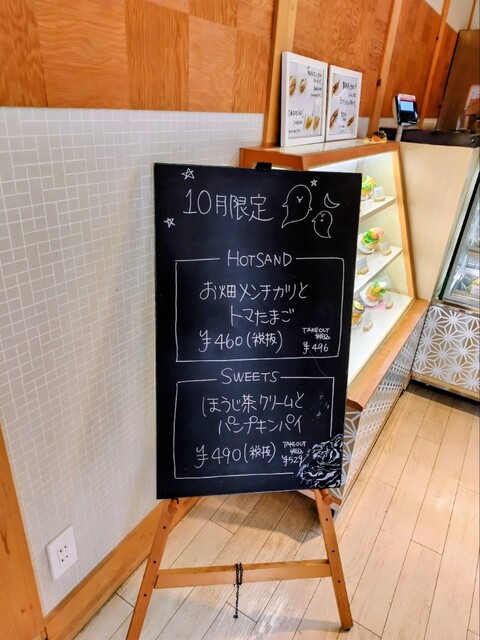 10月限定
HOTSAND
お畑メンチカツと
トマたまご
¥460(税抜)
TAKEOUT
税込
¥496
SWEETS
ほうじ茶クリームと
パンプキンパイ
¥490(税抜)
TAKEOUT
税込
¥529